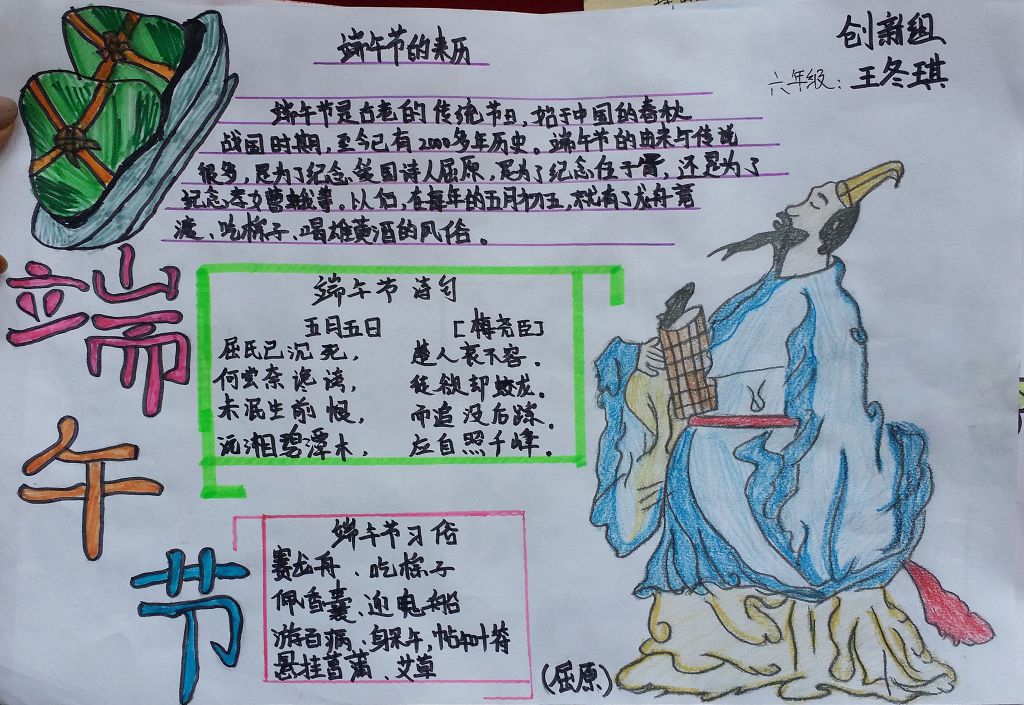 端午节的来历
创新组
六年级：王冬琪
端午节是古老的传统节日，始于中国的春秋
战国时期，至今已有2000多年历史。端午节的由来与传说
很多，是为了纪念爱国诗人屈原，是为了纪念伍子胥，还是为了
纪念孝女曹娥等。以们，在每年的五月初五，就有了龙舟竞
渡、吃粽子、喝雄黄酒的风俗。
端午节
端午节诗句
五月五日 [梅尧臣]
屈氏已沉死， 楚人哀不容。
何尝奈谗谤， 徒欲却蛟龙。
未泯生前恨， 而追没后踪。
沅湘碧潭木， 左自照千峰。
端午节习俗
赛龙舟、吃粽子
佩香囊、迎鬼船
游百病、躲午，帖午叶符
悬挂菖蒲、艾草
(屈原)